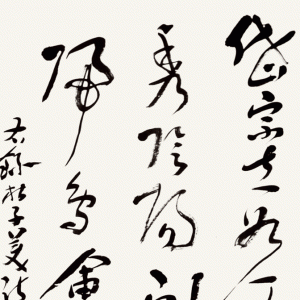 岱宗夫如何
秀陰陽
歸鳥會
右錄杜子美詩